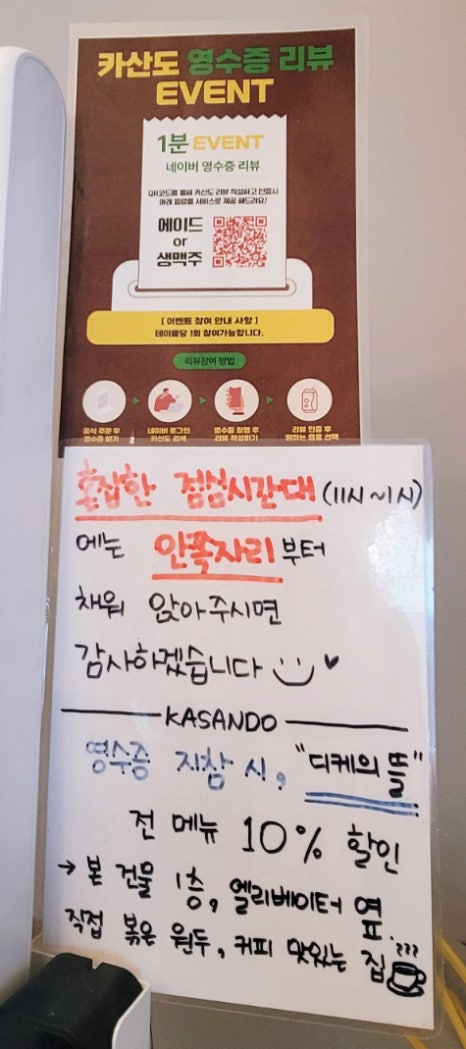 카산도 영수증 리뷰
EVENT
1분 EVENT
네이버 영수증 리뷰
QR코드를 통해 카산도 리뷰 작성하고 인증시
아래 음료를 서비스로 제공 해드려요!
에이드
or
생맥주
[ 이벤트 참여 안내 사항 ]
테이블당 1회 참여가능합니다.
리뷰참여 방법
음식 주문 후 네이버 로그인 영수증 촬영 후 리뷰 인증 후
영수증 받기 카산도 검색 리뷰 작성하기 원하는 음료 선택
혼잡한 점심시간대 (11시~1시)
에는 안쪽자리 부터
채워 앉아주시면
감사하겠습니다
KASANDO
영수증 지참 시, "디케의 뜰"
전 메뉴 10% 할인
→ 본 건물 1층, 엘리베이터 옆.
직접 볶은 원두, 커피 맛있는 집